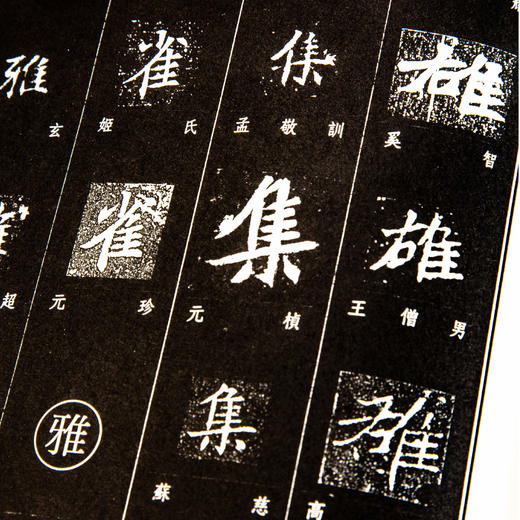 雄
奚智
雄
王僧男
雄
高
集
孟敬訓
集
元楨
集
蘇慈
雀
姬氏
雀
元珍
雅
雅
玄
超